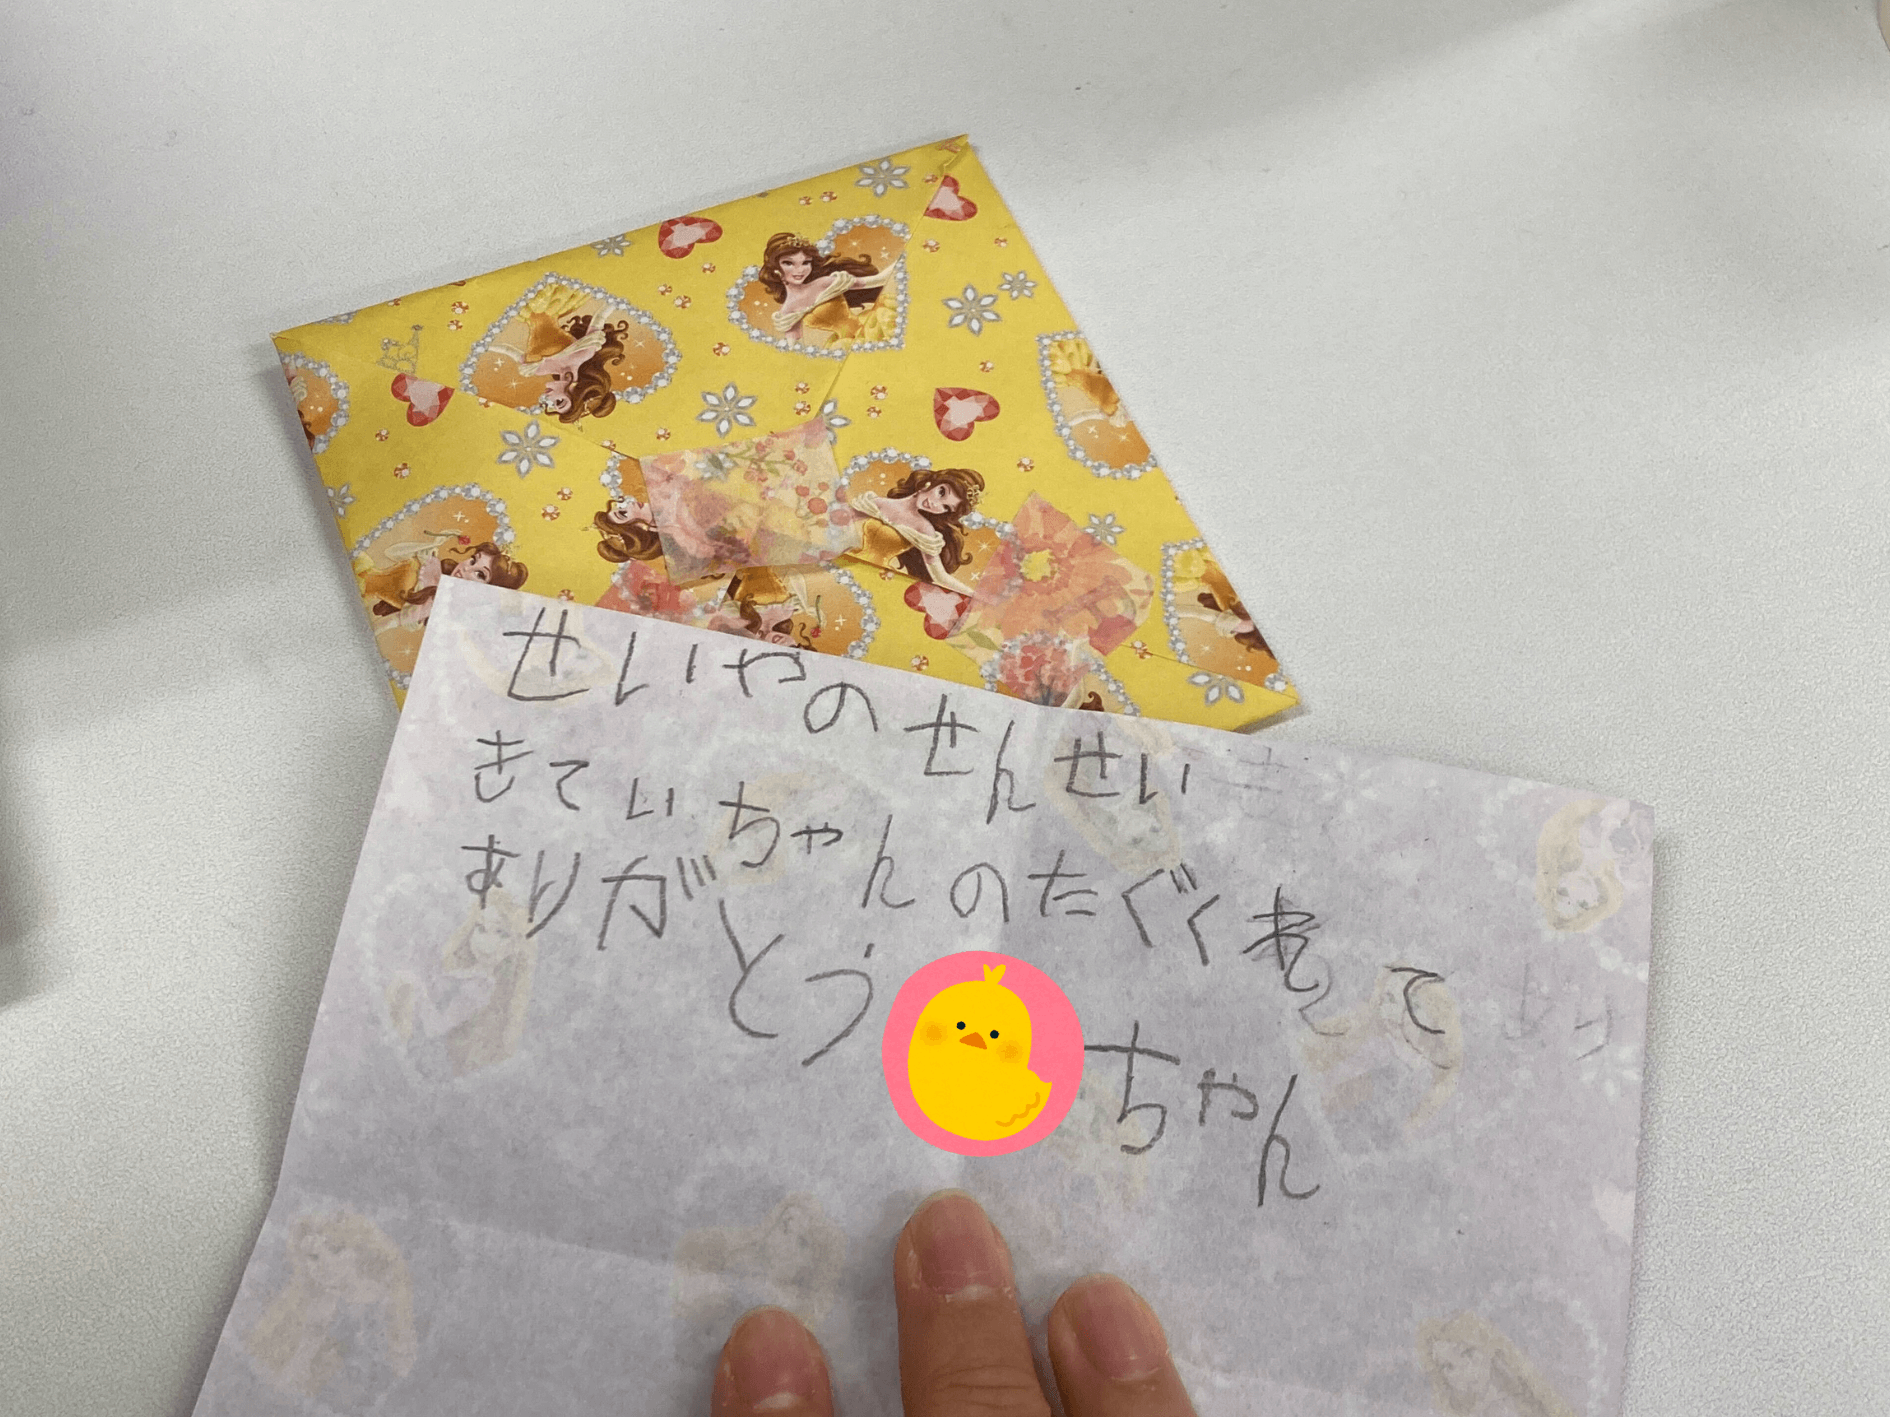 せいやのせんせい
きてぃちゃんのたぐくれて
ありがとう
ちゃん